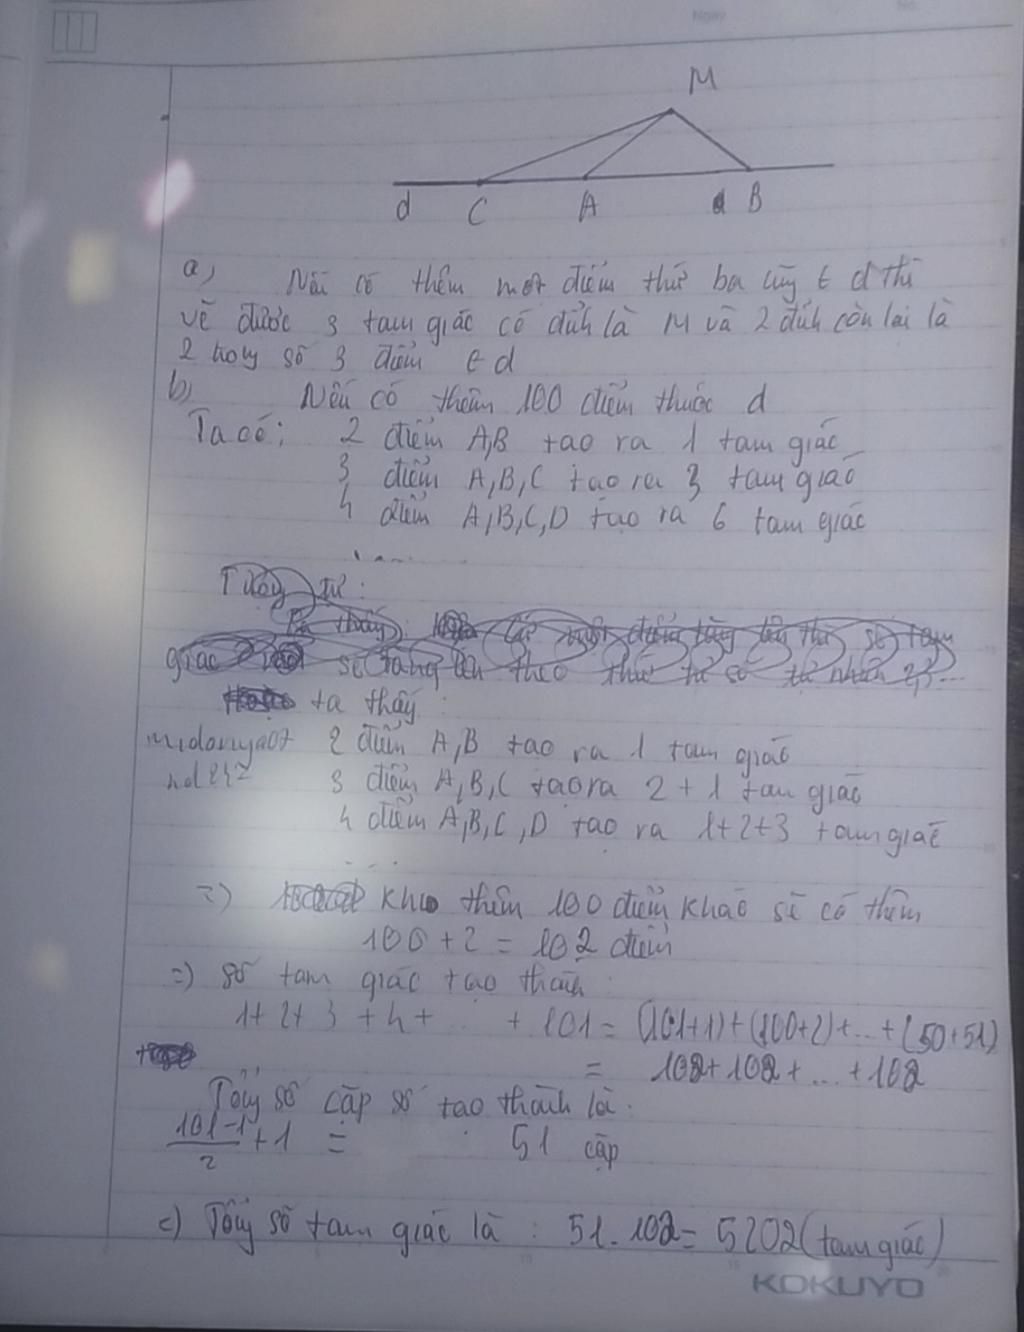 Ngày
No.
M
d C A B
a, Nếu có thêm một điểm thứ ba cũng ∈ d thì
vẽ được 3 tam giác có đỉnh là M và 2 đỉnh còn lại là
2 trong số 3 điểm ∈ d
b, Nếu có thêm 100 điểm thuộc d
Ta có: 2 điểm A,B tạo ra 1 tam giác
3 điểm A,B,C tạo ra 3 tam giác
4 điểm A,B,C,D tạo ra 6 tam giác
.....
Tương tự:
ta thấy:
2 điểm A,B tạo ra 1 tam giác
3 điểm A,B,C tạo ra 2+1 tam giác
4 điểm A,B,C,D tạo ra 1+2+3 tam giác
.....
=) khi thêm 100 điểm khác sẽ có thêm
100+2=102 điểm
=) số tam giác tạo thành
1+2+3+4+...+101=(101+1)+(100+2)+...+(50+51)
= 102+102+...+102
Tổng số cặp số tạo thành là:
101-1/2+1 = 51 cặp
c) Tổng số tam giác là : 51.102=5202(tam giác)
KOKUYO